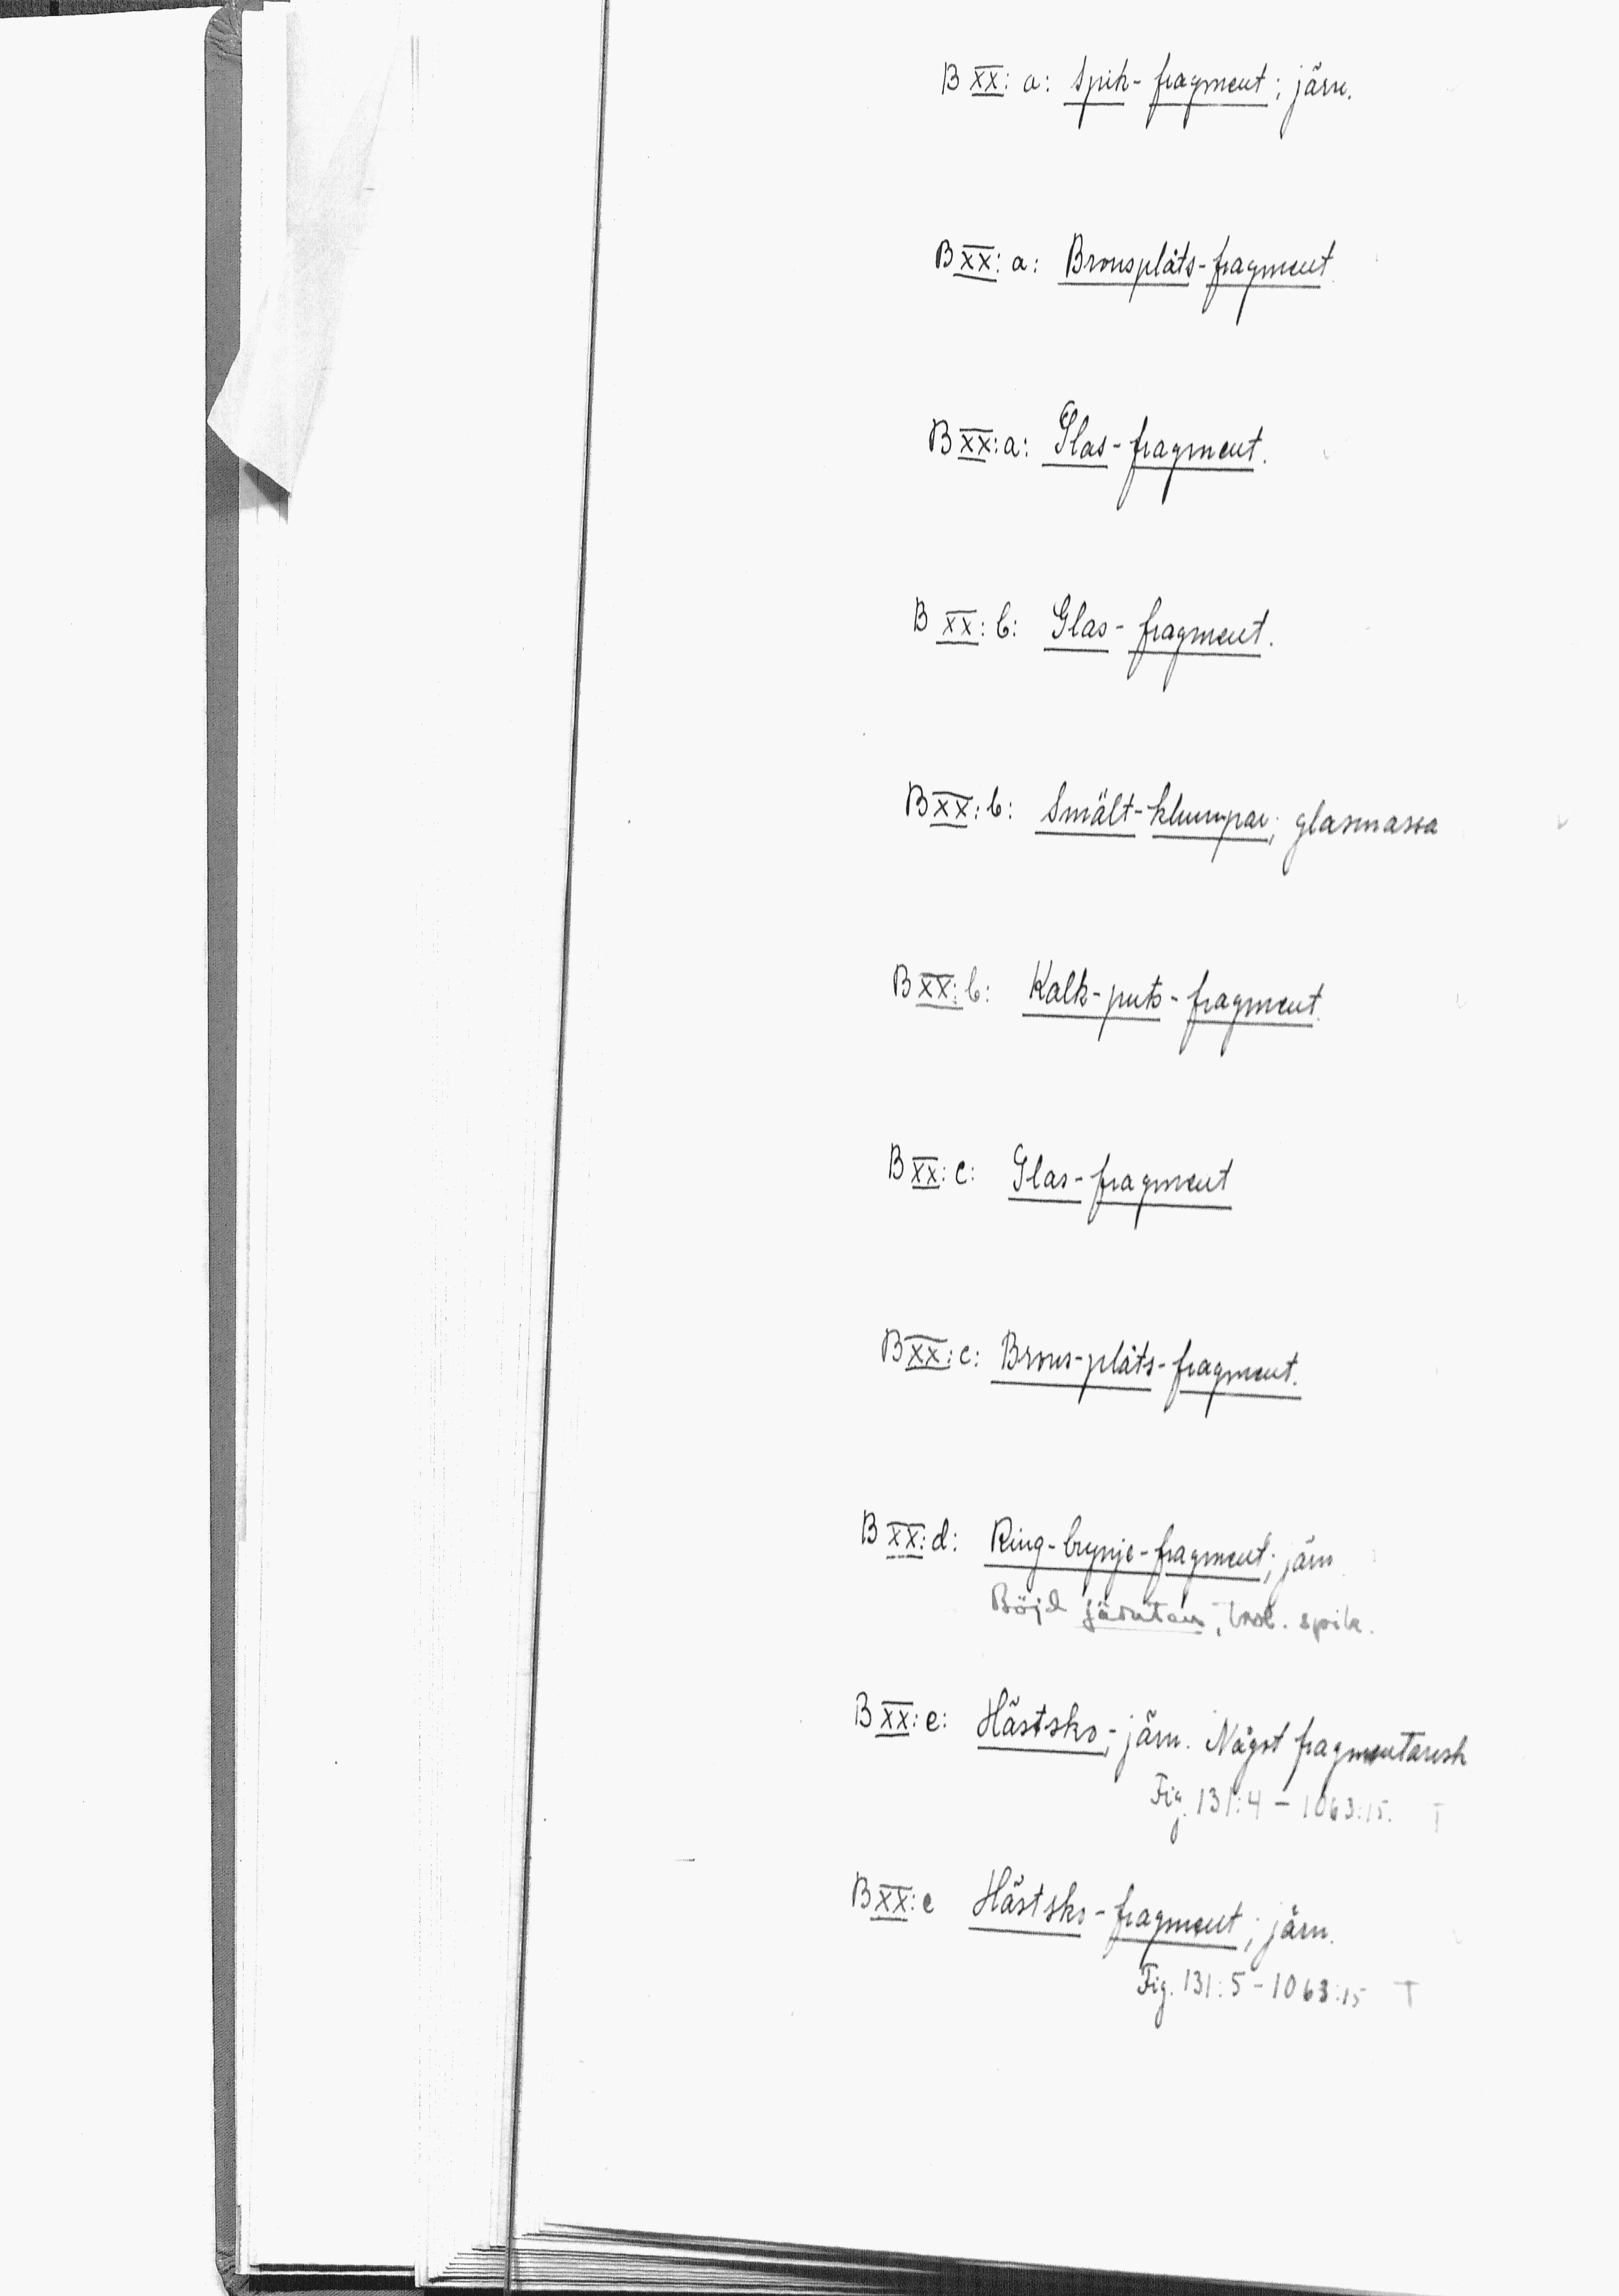 B XX: a: Spik-fragment; järn.
B XX: a: Bronsplåts-fragment.
B XX: a: Glas-fragment.
B XX: b: Glas-fragment.
B XX: b: Smält-klumpar; glasmassa
B XX: b: Kalk-puts-fragment.
B XX: c: Glas-fragment
B XX: c: Brons-plåts-fragment.
B XX: d: Ring-brynje-fragment; järn
Böjd järnten, trol. spik.
B XX: e: Hästsko; järn. Något fragmentarisk
Fig. 131:4 – 1063:15. T
B XX: e Hästsko-fragment; järn.
Fig. 131:5 – 1063:15 T